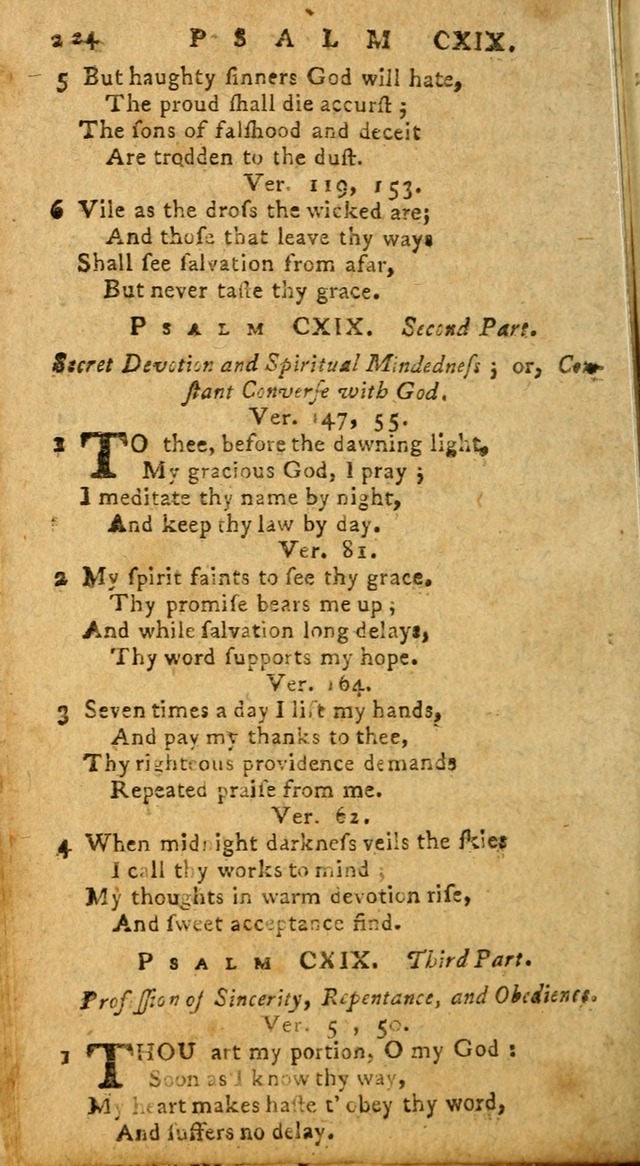 224 PSALM CXIX.
5 But haughty ſinners God will hate,
The proud ſhall die accurſt ;
The ſons of falſhood and deceit
Are trodden to the duſt.
Ver. 119, 153.
6 Vile as the droſs the wicked are;
And thoſe that leave thy ways
Shall ſee ſalvation from afar,
But never taſte thy grace.
PSALM CXIX. Second Part.
Secret Devotion and Spiritual Mindedneſs ; or, Con-
ſtant Converſe with God.
Ver. 147, 55.
1 TO thee, before the dawning light,
My gracious God, I pray ;
I meditate thy name by night,
And keep thy law by day.
Ver. 81.
2 My ſpirit faints to ſee thy grace,
Thy promiſe bears me up ;
And while ſalvation long delays,
Thy word ſupports my hope.
Ver. 164.
3 Seven times a day I lift my hands,
And pay my thanks to thee,
Thy righteous providence demands
Repeated praiſe from me.
Ver. 62.
4 When midnight darkneſs veils the ſkies
I call thy works to mind ;
My thoughts in warm devotion riſe,
And ſweet acceptance find.
PSALM CXIX. Third Part.
Profeſſion of Sincerity, Repentance, and Obedience.
Ver. 5 , 50.
1 THOU art my portion, O my God :
Soon as I know thy way,
My heart makes haſte t' obey thy word,
And ſuffers no delay.